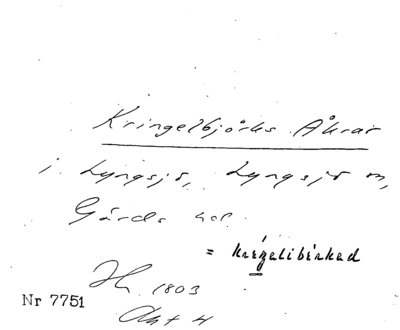 Kringelbjörks Åkrar
i Lyngsjö, Lyngsjö sn,
Gärds hd.
= kringelibérkad
Jh. 1803
Akt 4
Nr 7751